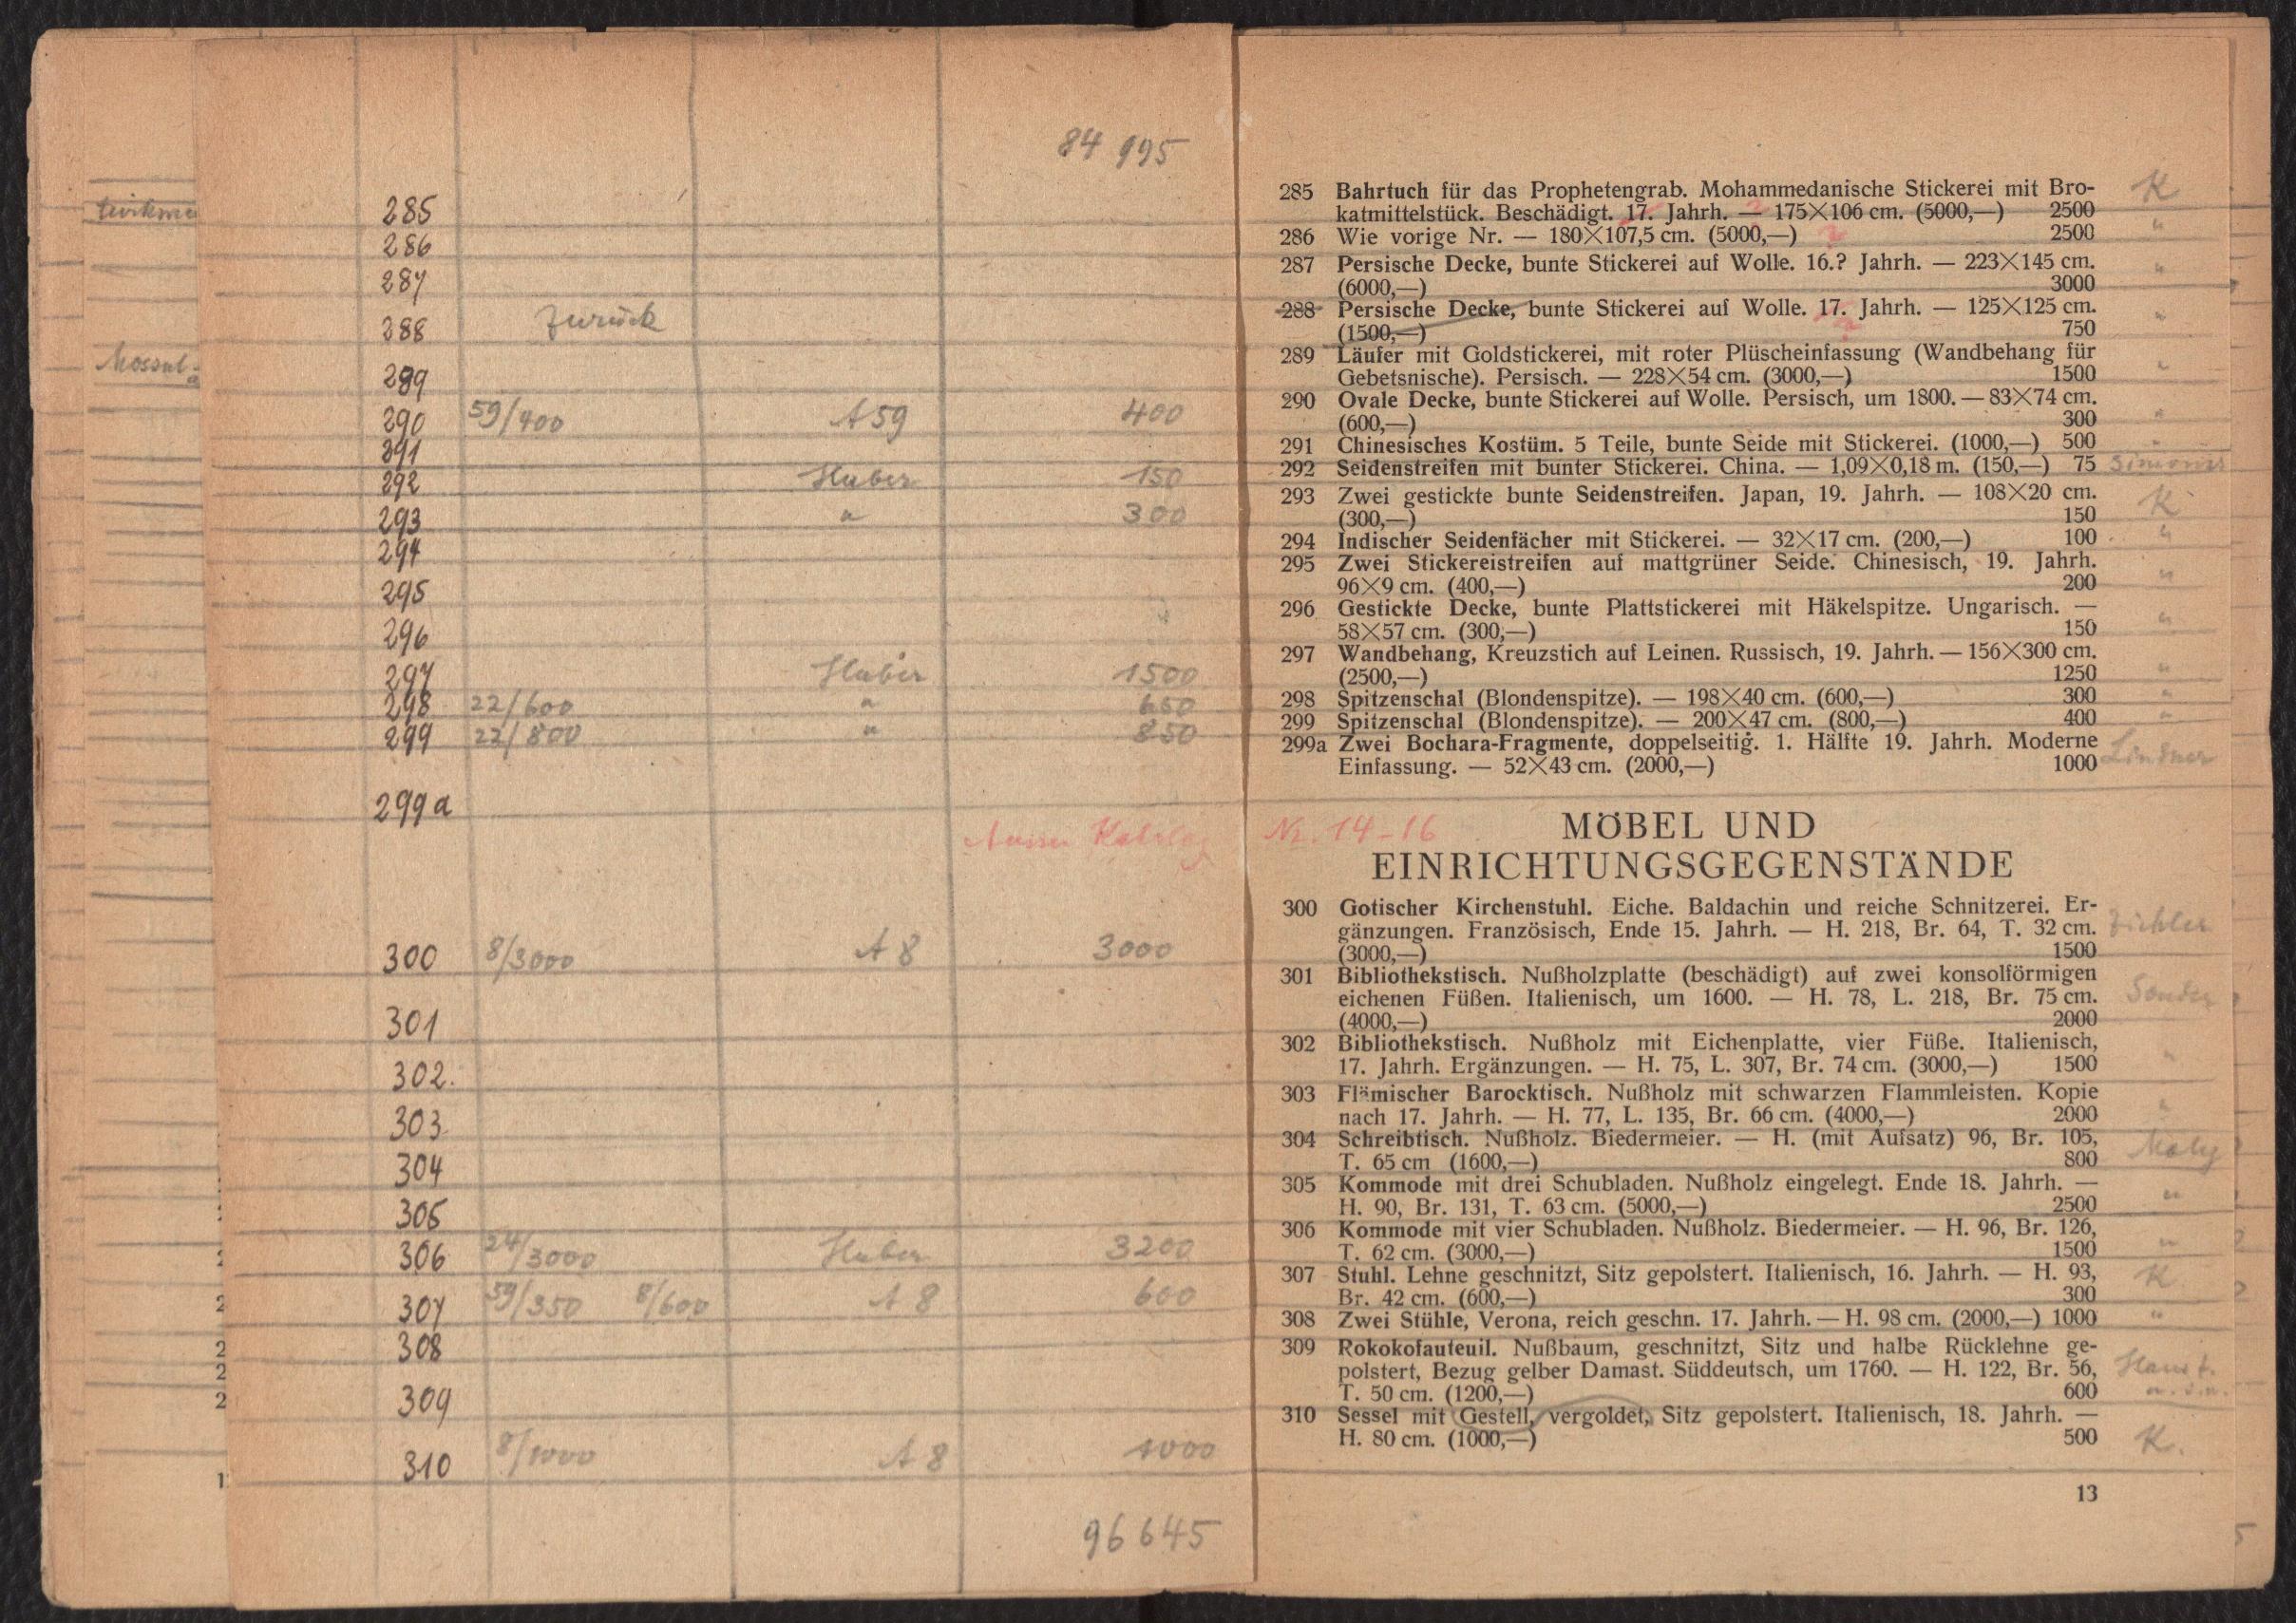 84 995
285
286
287
288 zurück
289
290 59/400 A 59 400
291
292 Huber 150
293 " 300
294
295
296
297 Huber 1500
298 22/600 " 650
299 22/800 " 850
299a
Ausser Katalog Nr. 14-16
300 8/3000 A 8 3000
301
302.
303
304
305
306 24/3000 Huber 3200
307 59/350 8/600 A 8 600
308
309
310 8/1000 A 8 1000
96 645
Mossul
285 Bahrtuch für das Prophetengrab. Mohammedanische Stickerei mit Bro- K
katmittelstück. Beschädigt. 17. Jahrh. — 175×106 cm. (5000,—) 2500
286 Wie vorige Nr. — 180×107,5 cm. (5000,—) ? 2500 "
287 Persische Decke, bunte Stickerei auf Wolle. 16.? Jahrh. — 223×145 cm. "
(6000,—) 3000
288 Persische Decke, bunte Stickerei auf Wolle. 17. Jahrh. — 125×125 cm. "
(1500,—) ? 750
289 Läufer mit Goldstickerei, mit roter Plüscheinfassung (Wandbehang für
Gebetsnische). Persisch. — 228×54 cm. (3000,—) 1500 "
290 Ovale Decke, bunte Stickerei auf Wolle. Persisch, um 1800. — 83×74 cm.
(600,—) 300 "
291 Chinesisches Kostüm. 5 Teile, bunte Seide mit Stickerei. (1000,—) 500 "
292 Seidenstreifen mit bunter Stickerei. China. — 1,09×0,18 m. (150,—) 75
293 Zwei gestickte bunte Seidenstreifen. Japan, 19. Jahrh. — 108×20 cm. K
(300,—) 150
294 Indischer Seidenfächer mit Stickerei. — 32×17 cm. (200,—) 100 "
295 Zwei Stickereistreifen auf mattgrüner Seide. Chinesisch, 19. Jahrh.
96×9 cm. (400,—) 200 "
296 Gestickte Decke, bunte Plattstickerei mit Häkelspitze. Ungarisch. —
58×57 cm. (300,—) 150 "
297 Wandbehang, Kreuzstich auf Leinen. Russisch, 19. Jahrh. — 156×300 cm.
(2500,—) 1250 "
298 Spitzenschal (Blondenspitze). — 198×40 cm. (600,—) 300 "
299 Spitzenschal (Blondenspitze). — 200×47 cm. (800,—) 400 "
299a Zwei Bochara-Fragmente, doppelseitig. 1. Hälfte 19. Jahrh. Moderne Lindner
Einfassung. — 52×43 cm. (2000,—) 1000
MÖBEL UND
EINRICHTUNGSGEGENSTÄNDE
300 Gotischer Kirchenstuhl. Eiche. Baldachin und reiche Schnitzerei. Er-
gänzungen. Französisch, Ende 15. Jahrh. — H. 218, Br. 64, T. 32 cm.
(3000,—) 1500
301 Bibliothekstisch. Nußholzplatte (beschädigt) auf zwei konsolförmigen
eichenen Füßen. Italienisch, um 1600. — H. 78, L. 218, Br. 75 cm.
(4000,—) 2000
302 Bibliothekstisch. Nußholz mit Eichenplatte, vier Füße. Italienisch,
17. Jahrh. Ergänzungen. — H. 75, L. 307, Br. 74 cm. (3000,—) 1500 "
303 Flämischer Barocktisch. Nußholz mit schwarzen Flammleisten. Kopie
nach 17. Jahrh. — H. 77, L. 135, Br. 66 cm. (4000,—) 2000 "
304 Schreibtisch. Nußholz. Biedermeier. — H. (mit Aufsatz) 96, Br. 105,
T. 65 cm (1600,—) 800
305 Kommode mit drei Schubladen. Nußholz eingelegt. Ende 18. Jahrh. —
H. 90, Br. 131, T. 63 cm. (5000,—) 2500 "
306 Kommode mit vier Schubladen. Nußholz. Biedermeier. — H. 96, Br. 126,
T. 62 cm. (3000,—) 1500 "
307 Stuhl. Lehne geschnitzt, Sitz gepolstert. Italienisch, 16. Jahrh. — H. 93, K
Br. 42 cm. (600,—) 300
308 Zwei Stühle, Verona, reich geschn. 17. Jahrh. — H. 98 cm. (2000,—) 1000 "
309 Rokokofauteuil. Nußbaum, geschnitzt, Sitz und halbe Rücklehne ge-
polstert, Bezug gelber Damast. Süddeutsch, um 1760. — H. 122, Br. 56,
T. 50 cm. (1200,—) 600
310 Sessel mit Gestell, vergoldet, Sitz gepolstert. Italienisch, 18. Jahrh. —
H. 80 cm. (1000,—) 500 K.
13